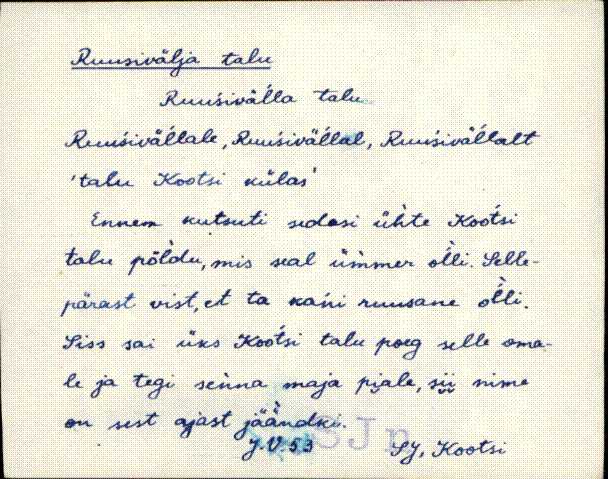 Ruusivälja talu
Ruuśiväĺla talu
Ruuśiväĺlale, Ruuśiväĺlal, Ruuśiväĺlalt
'talu Kootsi külas'
Ennem kutsuti sedasi üh̀te Kootśi
talu põl̀du, mis seal üm̀mer ol̀li. Selle-
pärast vist, et ta kańi ruusane ol̀li.
Siss sai üks Kootśi talu poeg selle oma-
le ja tegi seǹna maja piale, sii nime
on sest ajast jääǹdki.
J.V.53 SJn
SJ, Kootsi